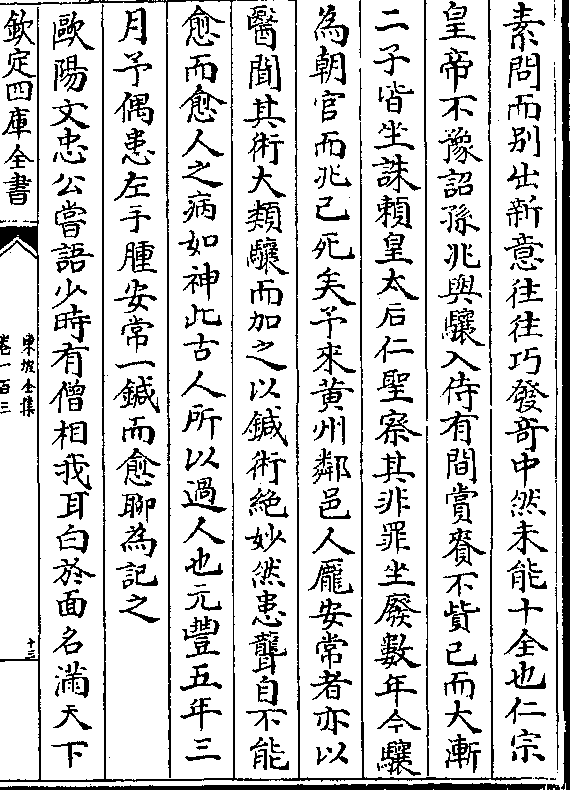 素問而别出新意往往巧發竒中然未能十全也仁宗
皇帝不豫詔孫兆與驤入侍有間賞賚不貲已而大漸
二子皆坐誅賴皇太后仁聖察其非罪坐廢數年今驤
為朝官而兆已死矣予來黄州鄰邑人龐安常者亦以
醫聞其術大類驤而加之以鍼術絶妙然患聾自不能
愈而愈人之病如神此古人所以過人也元豐五年三
月予偶患左手腫安常一鍼而愈聊為記之
歐陽文忠公嘗語少時有僧相我耳白於面名滿天下
欽定四庫全書
東坡全集
卷一百三
十三